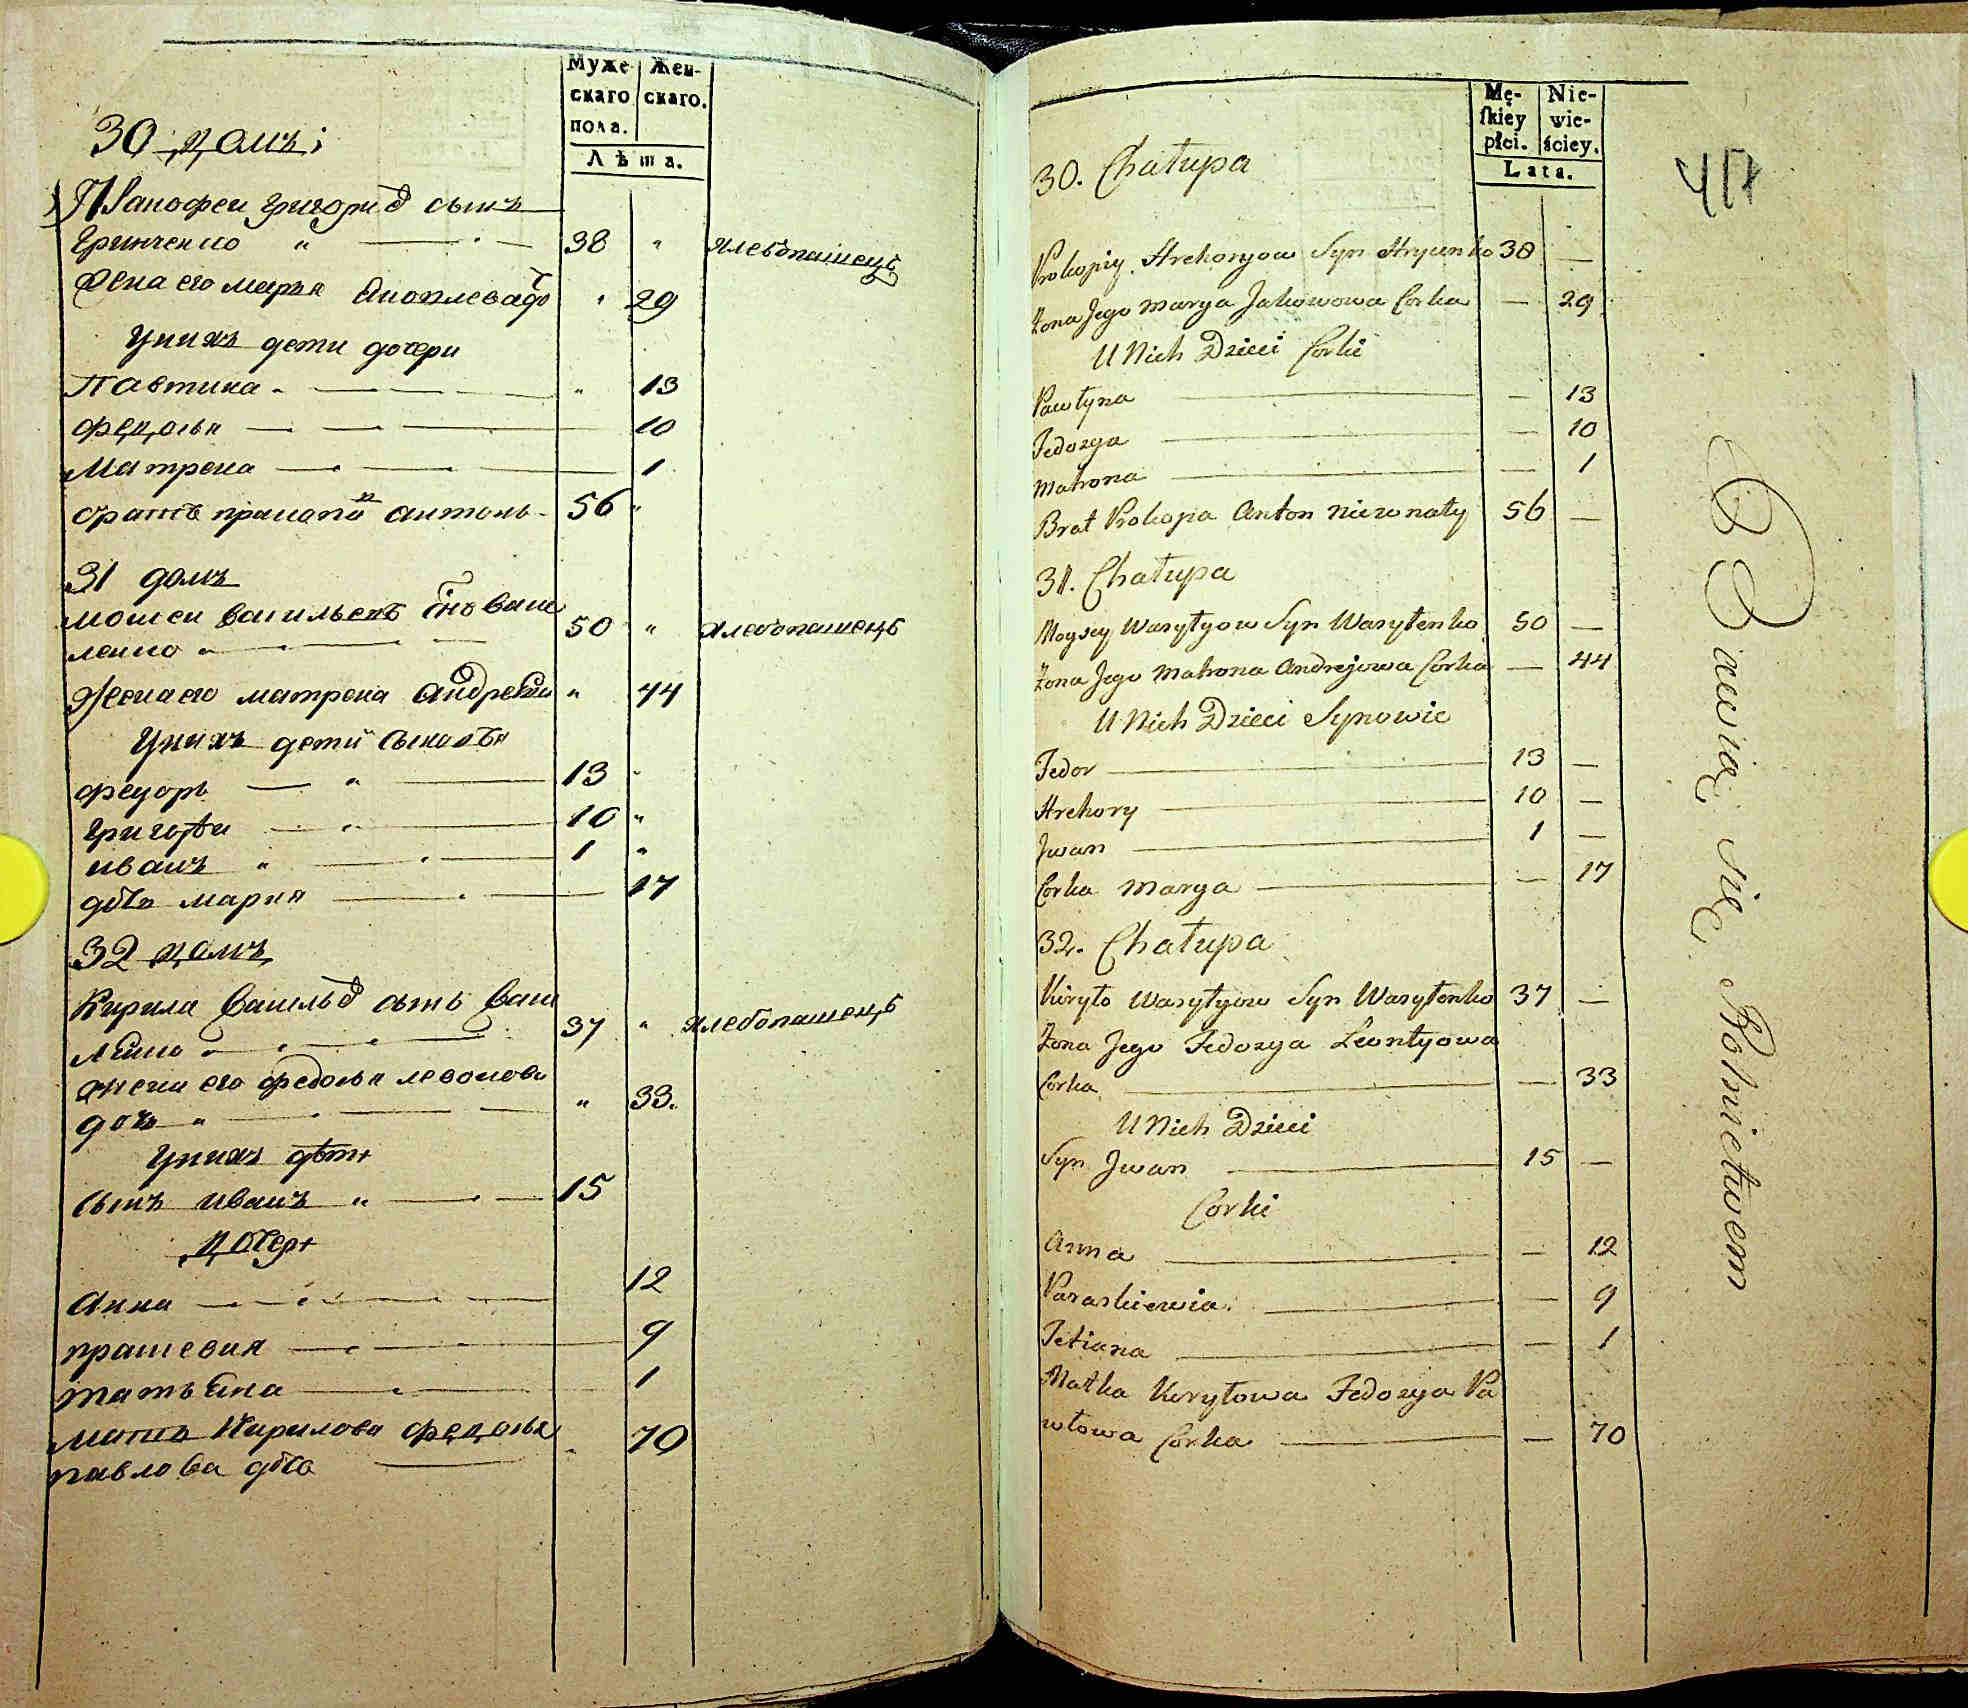 Муже- Жен-
скаго скаго.
пола.
Лѣта.
30 домъ
григориѣ сынъ
гринченко " 38 " хлебопашецъ
жена его марья " 29
унихъ дети дочери
Павтина " 13
федосья 10
Матрена 1
братъ антонъ 56 "
31 домъ
мойсеи василь снъ васи
ленко " 50 " хлебопашецъ
жена его матрена андреева " 44
унихъ дети сыновья
федоръ " 13 "
григорѣи 10 "
иванъ " 1 "
дочь мария 17
32 домъ
Кирила сынъ васи
ленко 37 " хлебопашецъ
жена его федосья
дочь " " 33.
унихъ дѣти
сынъ иванъ " 15
дочери
анна 12
праскевия 9
татьяна 1
мать Кирилова федосья 70
павлова дочь
Mę- Nie-
skiey wie-
płci. ściey.
Lata.
47
30. Chałupa
Prokopiy Hrehoryow Syn Hrycenko 38 —
Żona Jego Marya Jakowowa Corka — 29
U Nich Dzieci Corki
Pawłyna — 13
Fedosya — 10
Matrona — 1
Brat Prokopa Anton niezonaty 56 —
31. Chałupa
Moysey Wasyłyow Syn Wasyłenko 50 —
Żona Jego Matrona Andrejowa Corka — 44
U Nich Dzieci Synowie
Fedor 13 —
Hrehory 10 —
Jwan 1 —
Corka Marya — 17
32. Chałupa
Kiryło Wasyłyow Syn Wasyłenko 37 —
Żona Jego Fedosya Leontyowa
Corka — 33
U Nich Dzieci
Syn Jwan 15 —
Corki
Anna — 12
Paraskiewia — 9
Tetiana — 1
Matka Kiryłowa Fedosya Pa
włowa Corka — 70
Bawią się Rolnictwem